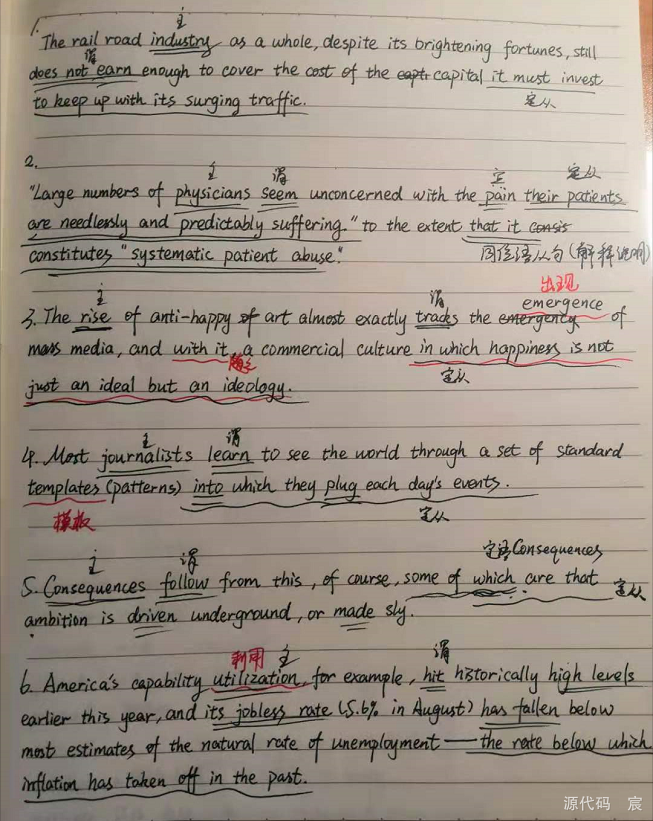 1.
主
The rail road industry as a whole, despite its brightening fortunes, still
谓
does not earn enough to cover the cost of the capti capital it must invest
to keep up with its surging traffic. 定从
2.
主 谓 定从
"Large numbers of physicians seem unconcerned with the pain their patients
are needlessly and predictably suffering." to the extent that it consis
constitutes "systematic patient abuse". 同位语从句(解释说明)
出现
主 谓 emergence
3. The rise of anti-happy of art almost exactly tracks the emergency of
mass media, and with it, a commercial culture in which happiness is not
随之
just an ideal but an ideology. 定从
主 谓
4. Most journalists learn to see the world through a set of standard
templates (patterns) into which they plug each day's events.
模板 定从
主 谓 定语Consequences
5. Consequences follow from this, of course, some of which are that 定从
ambition is driven underground, or made sly.
利用 主 谓
6. America's capability utilization, for example, hit historically high levels
earlier this year, and its jobless rate (5.6% in August) has fallen below
most estimates of the natural rate of unemployment — the rate below which
inflation has taken off in the past.
源代码 宸